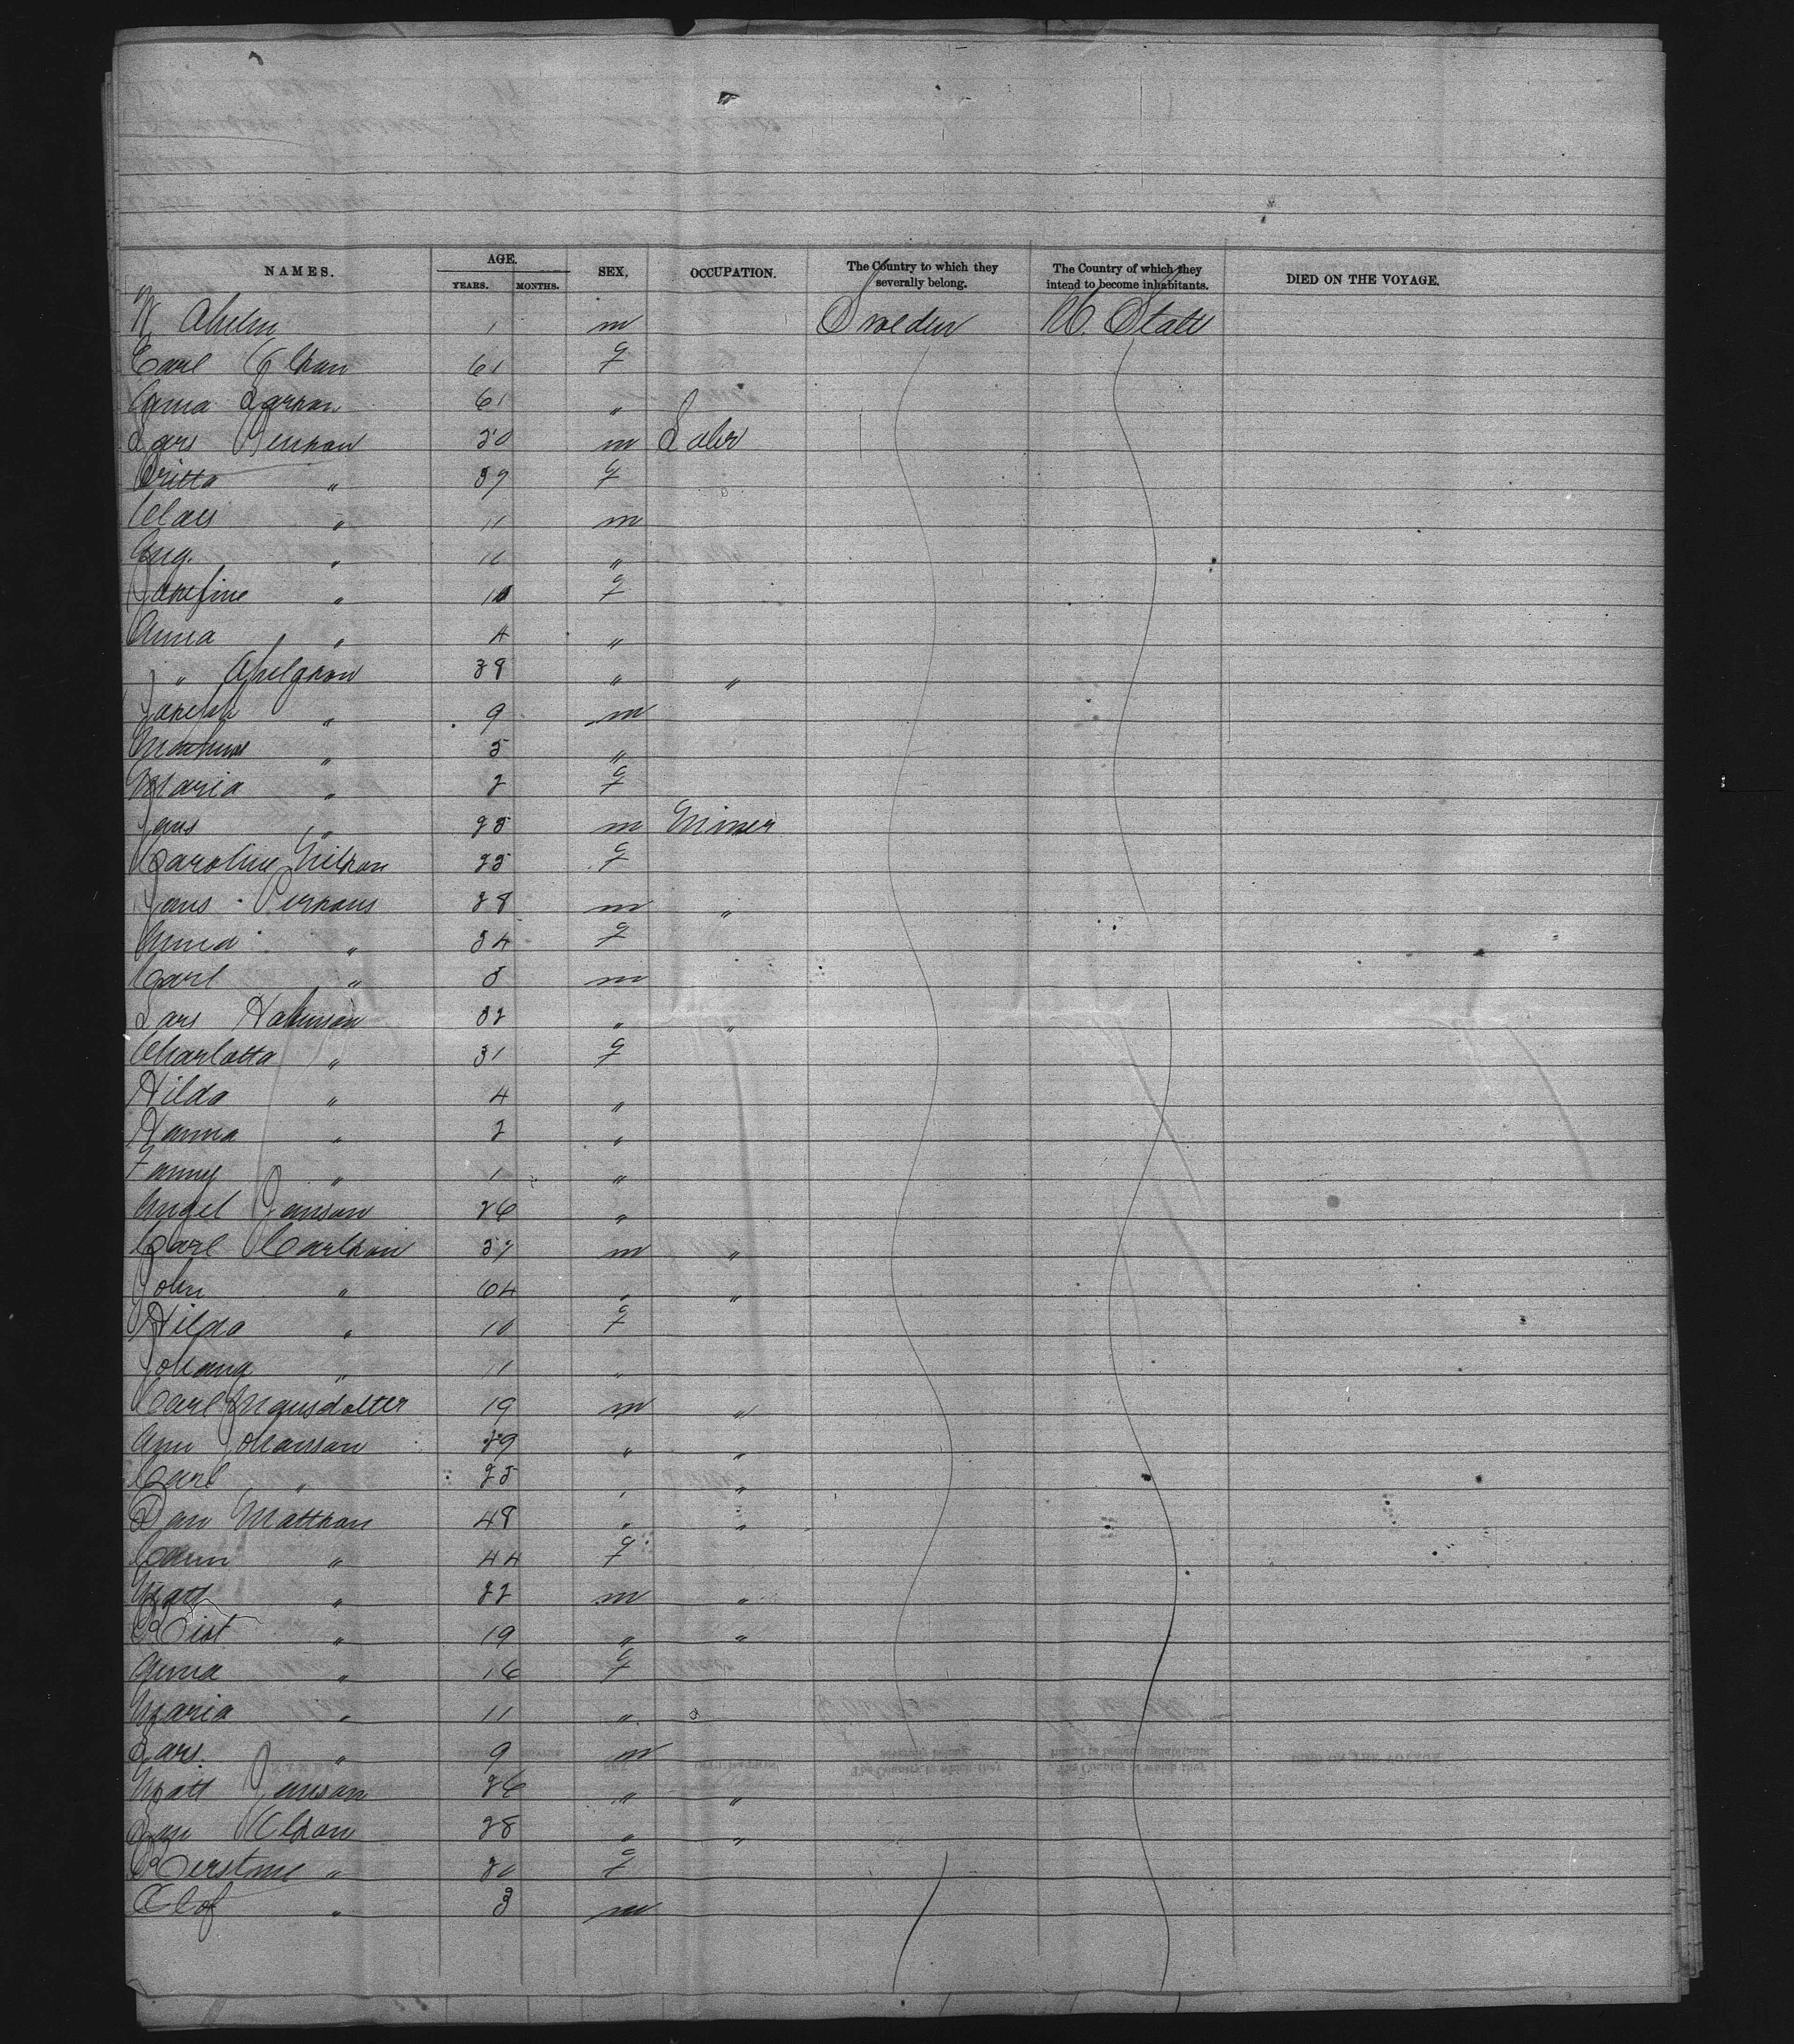 NAMES. AGE. YEARS. MONTHS. SEX, OCCUPATION. The Country to which they severally belong. The Country of which they intend to become inhabitants. DIED ON THE VOYAGE.
1 m Sweden U. State
Carl Olson 61 f
Anna Larson 61 "
Lars 50 m Labr
Britta " 39 f
Claes " 11 m
Aug. " "
Josefine " f
Anna " 4 "
" 38 " "
Joseph " 9 m
" 5 "
Maria " 2 f
Jans " 25 m Miner
Caroline Nilson 25 f
Jans Persons 28 m "
Anna " 34 f
Carl " m
Lars 32 " "
Charlotta " 31 f
Hilda " 4 "
Hanna " 2 "
Fanny " 1 "
Janson 26 "
Carl Carlson m "
John " 64 " "
Hilda " 10 f
Johana " 11 "
Carl Magnsdotter 19 m "
Johanson 29 " "
Carl " 25 " "
Dan Mattson 48 " "
" 44 f
Matt " 22 m "
Krist " 19 " "
Anna " 16 f
Maria " 11 "
Lars " 9 m
Matt Janson 26 " "
Olson 28 " "
" f
Olof " 3 m